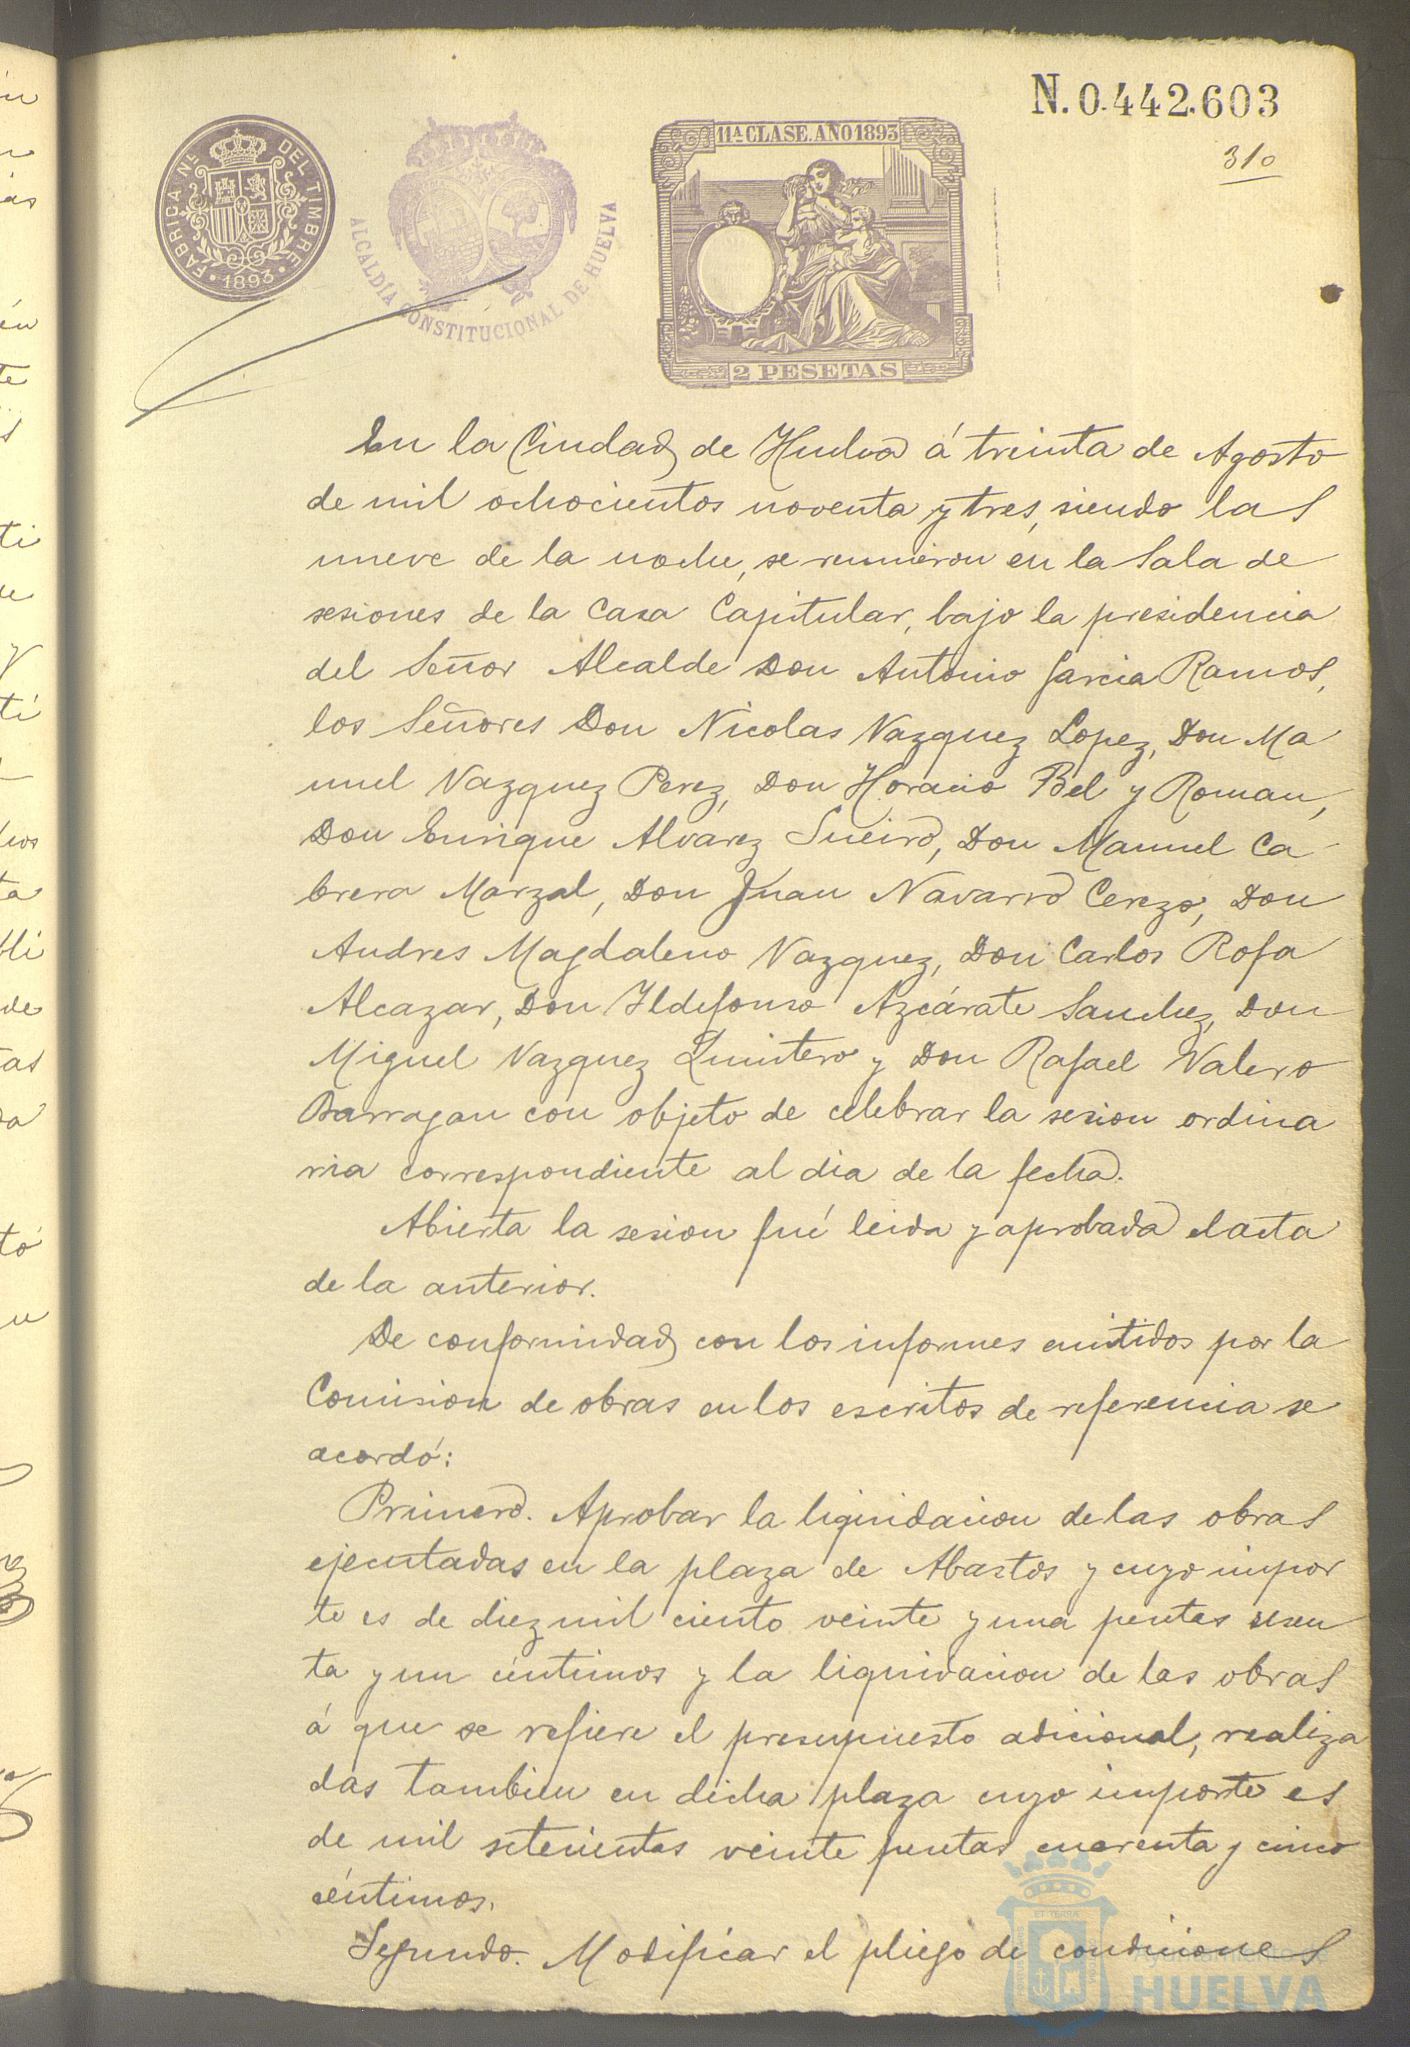 N. 0.442.603
310
FABRICA NL. DEL TIMBRE
1893
ALCALDÍA CONSTITUCIONAL DE HUELVA
11ª CLASE. AÑO 1893
2 PESETAS
En la Ciudad de Huelva á treinta de Agosto
de mil ochocientos noventa y tres, siendo las
nueve de la noche, se reunieron en la Sala de
sesiones de la Casa Capitular, bajo la presidencia
del Señor Alcalde Don Antonio Garcia Ramos,
los Señores Don Nicolas Vazquez Lopez, Don Ma
nuel Vazquez Perez, Don Horacio Bel y Roman,
Don Enrique Alvarez Sueiro, Don Manuel Ca
brera Marzal, Don Juan Navarro Cerezo, Don
Andres Magdaleno Vazquez, Don Carlos Rofa
Alcazar, Don Ildefonso Azcárate Sanchez, Don
Miguel Vazquez Quintero y Don Rafael Valero
Barragan con objeto de celebrar la sesion ordina
ria correspondiente al dia de la fecha.
Abierta la sesion fué leida y aprobada el acta
de la anterior.
De conformidad con los informes emitidos por la
Comision de obras en los escritos de referencia se
acordó:
Primero. Aprobar la liquidacion de las obras
ejecutadas en la plaza de Abastos y cuyo impor
te es de diez mil ciento veinte y una pesetas sesen
ta y un céntimos y la liquidacion de las obras
á que se refiere el presupuesto adicional, realiza
das tambien en dicha plaza cuyo importe es
de mil setecientas veinte pesetas cuarenta y cinco
céntimos.
Segundo. Modificar el pliego de condiciones
Ayuntamiento de
HUELVA